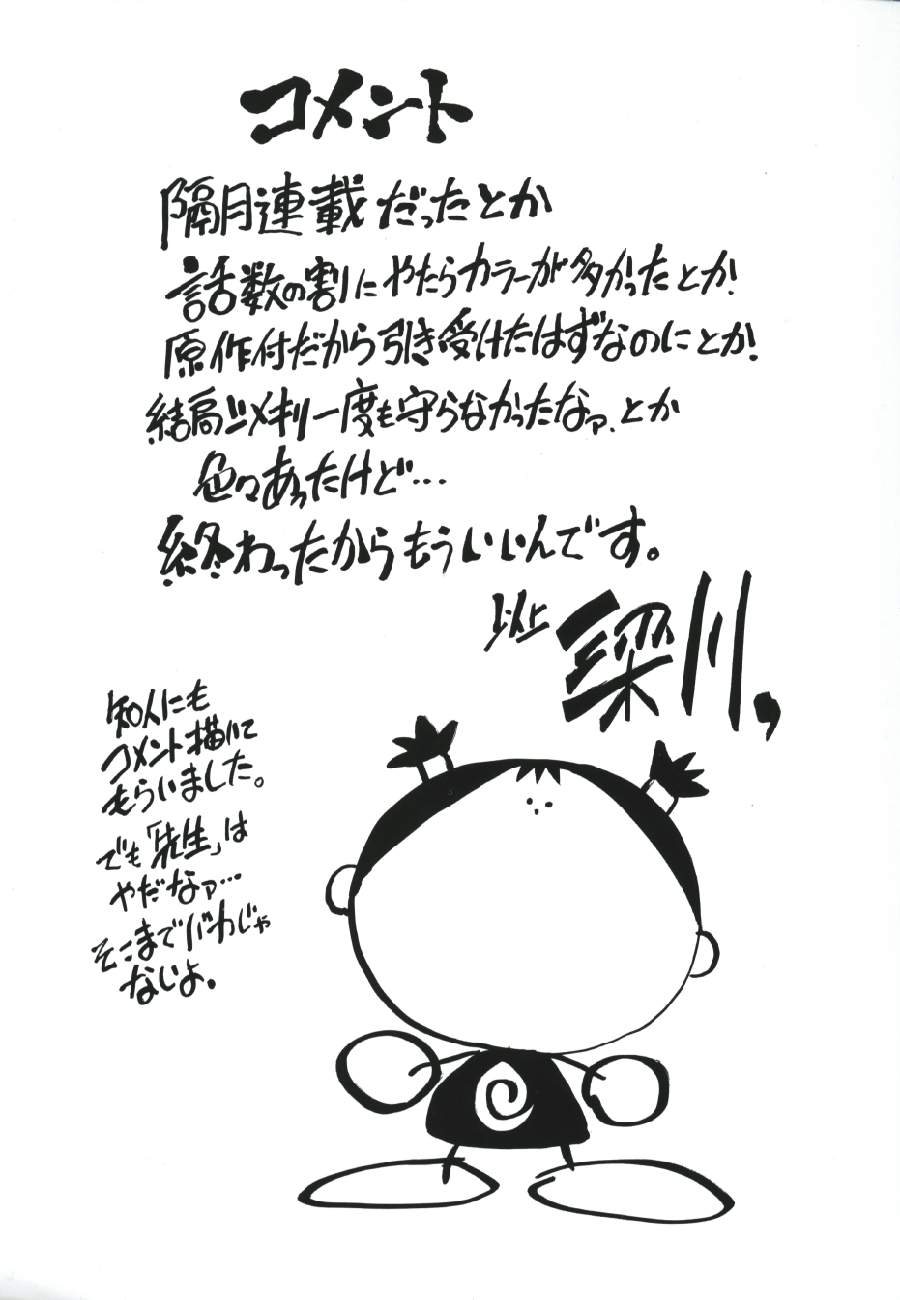 コメント
隔月連載だったとか
話数の割にやたらカラーが多かったとか、
原作付だから引き受けたはずなのにとか、
結局〆メキリ一度も守らなかったなァ、とか
色々あったけど…
終わったからもういいんです。
以上 深川、
知人にも
コメント描いて
もらいました。
でも「先生」は
やだなァ…
そこまでバカじゃ
ないよ。